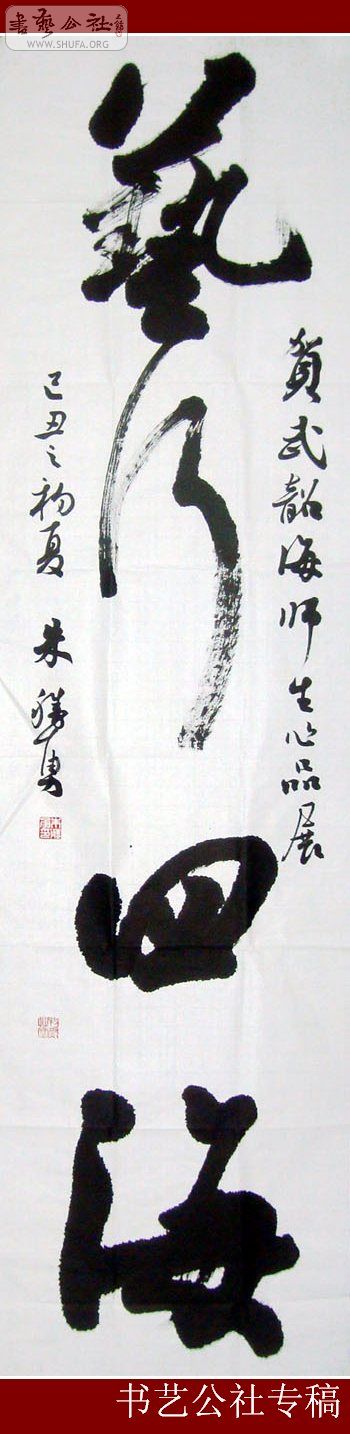 書藝公社
WWW.SHUFA.ORG
賀武韶海师生作品展
藝行四海
己丑之初夏 朱勝勇
书艺公社专稿